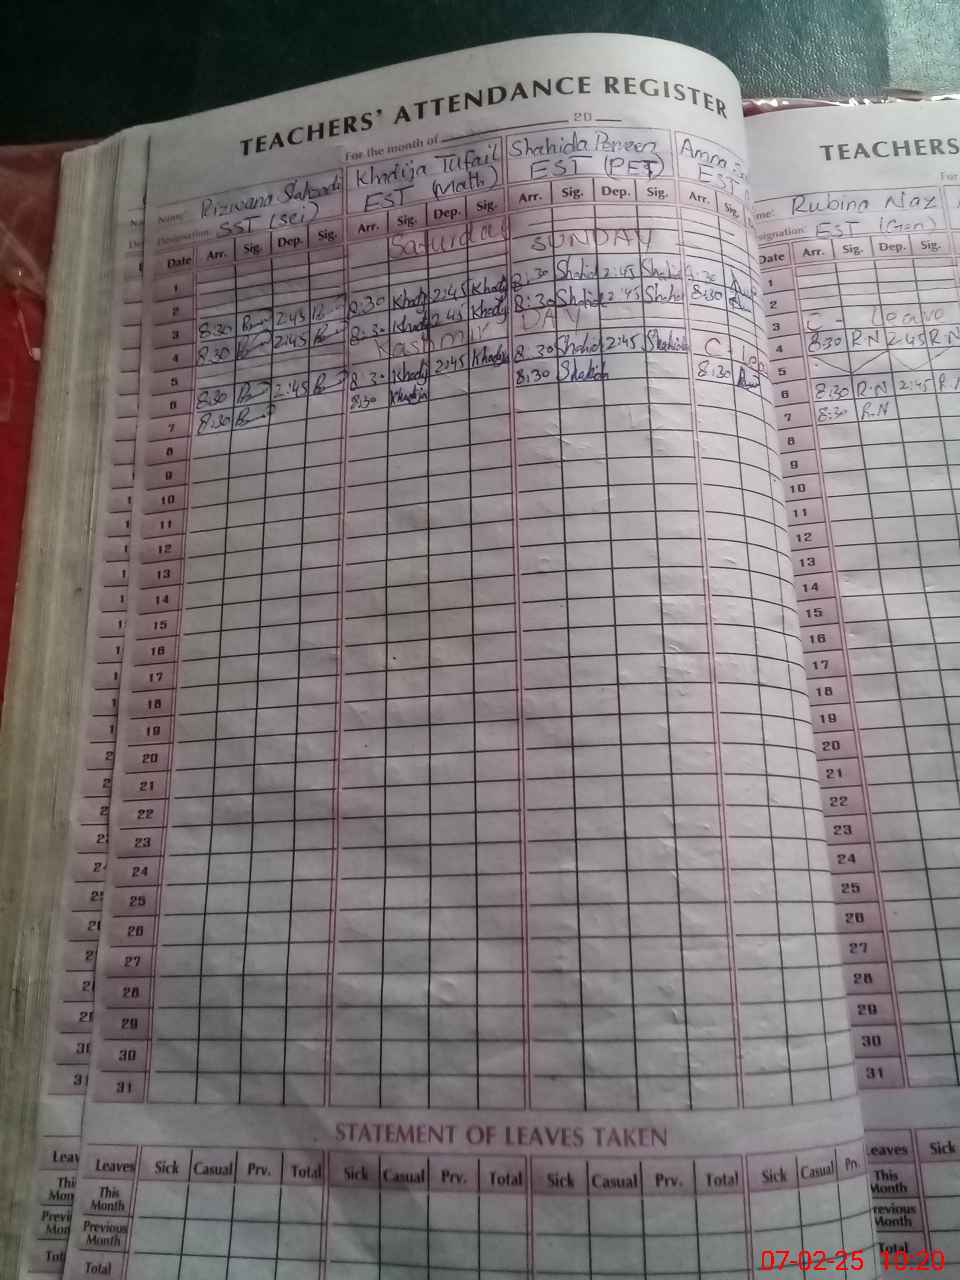 TEACHERS' ATTENDANCE REGISTER
For the month of 20
Name: Rizwana Shahzadi Khadija Tufail Shahida Perveen Amna
Designation: SST (Sci) EST (Math) EST (PET) EST
Date Arr. Sig. Dep. Sig. Arr. Sig. Dep. Sig. Arr. Sig. Dep. Sig. Arr. Sig.
1 Saturday
2 SUNDAY
3 8:30 2:45 8:30 Khadij 2:45 Khadij 8:30 Shahida 2:45 Shahida 8:30
4 8:30 2:45 8:30 Khadij 2:45 Khadij 8:30 Shahida 2:45 Shahida 8:30
5 Kashmir DAY
6 8:30 2:45 8:30 Khadij 2:45 Khadija 8:30 Shahid 2:45 Shahida C-
7 8:30 8:30 Khadija 8:30 Shahida 8:30
8
9
10
11
12
13
14
15
16
17
18
19
20
21
22
23
24
25
26
27
28
29
30
31
STATEMENT OF LEAVES TAKEN
Leaves Sick Casual Prv. Total Sick Casual Prv. Total Sick Casual Prv. Total Sick Casual
This Month
Previous Month
Total
TEACHERS
Rubina Naz
EST (Gen)
Date Arr. Sig. Dep. Sig.
1
2
3 C - Leave
4 8:30 R.N 2:45 R.N
5
6 8:30 R.N 2:45 R.N
7 8:30 R.N
8
9
10
11
12
13
14
15
16
17
18
19
20
21
22
23
24
25
26
27
28
29
30
31
Sick
This
Month
Total
07-02-25 10:20